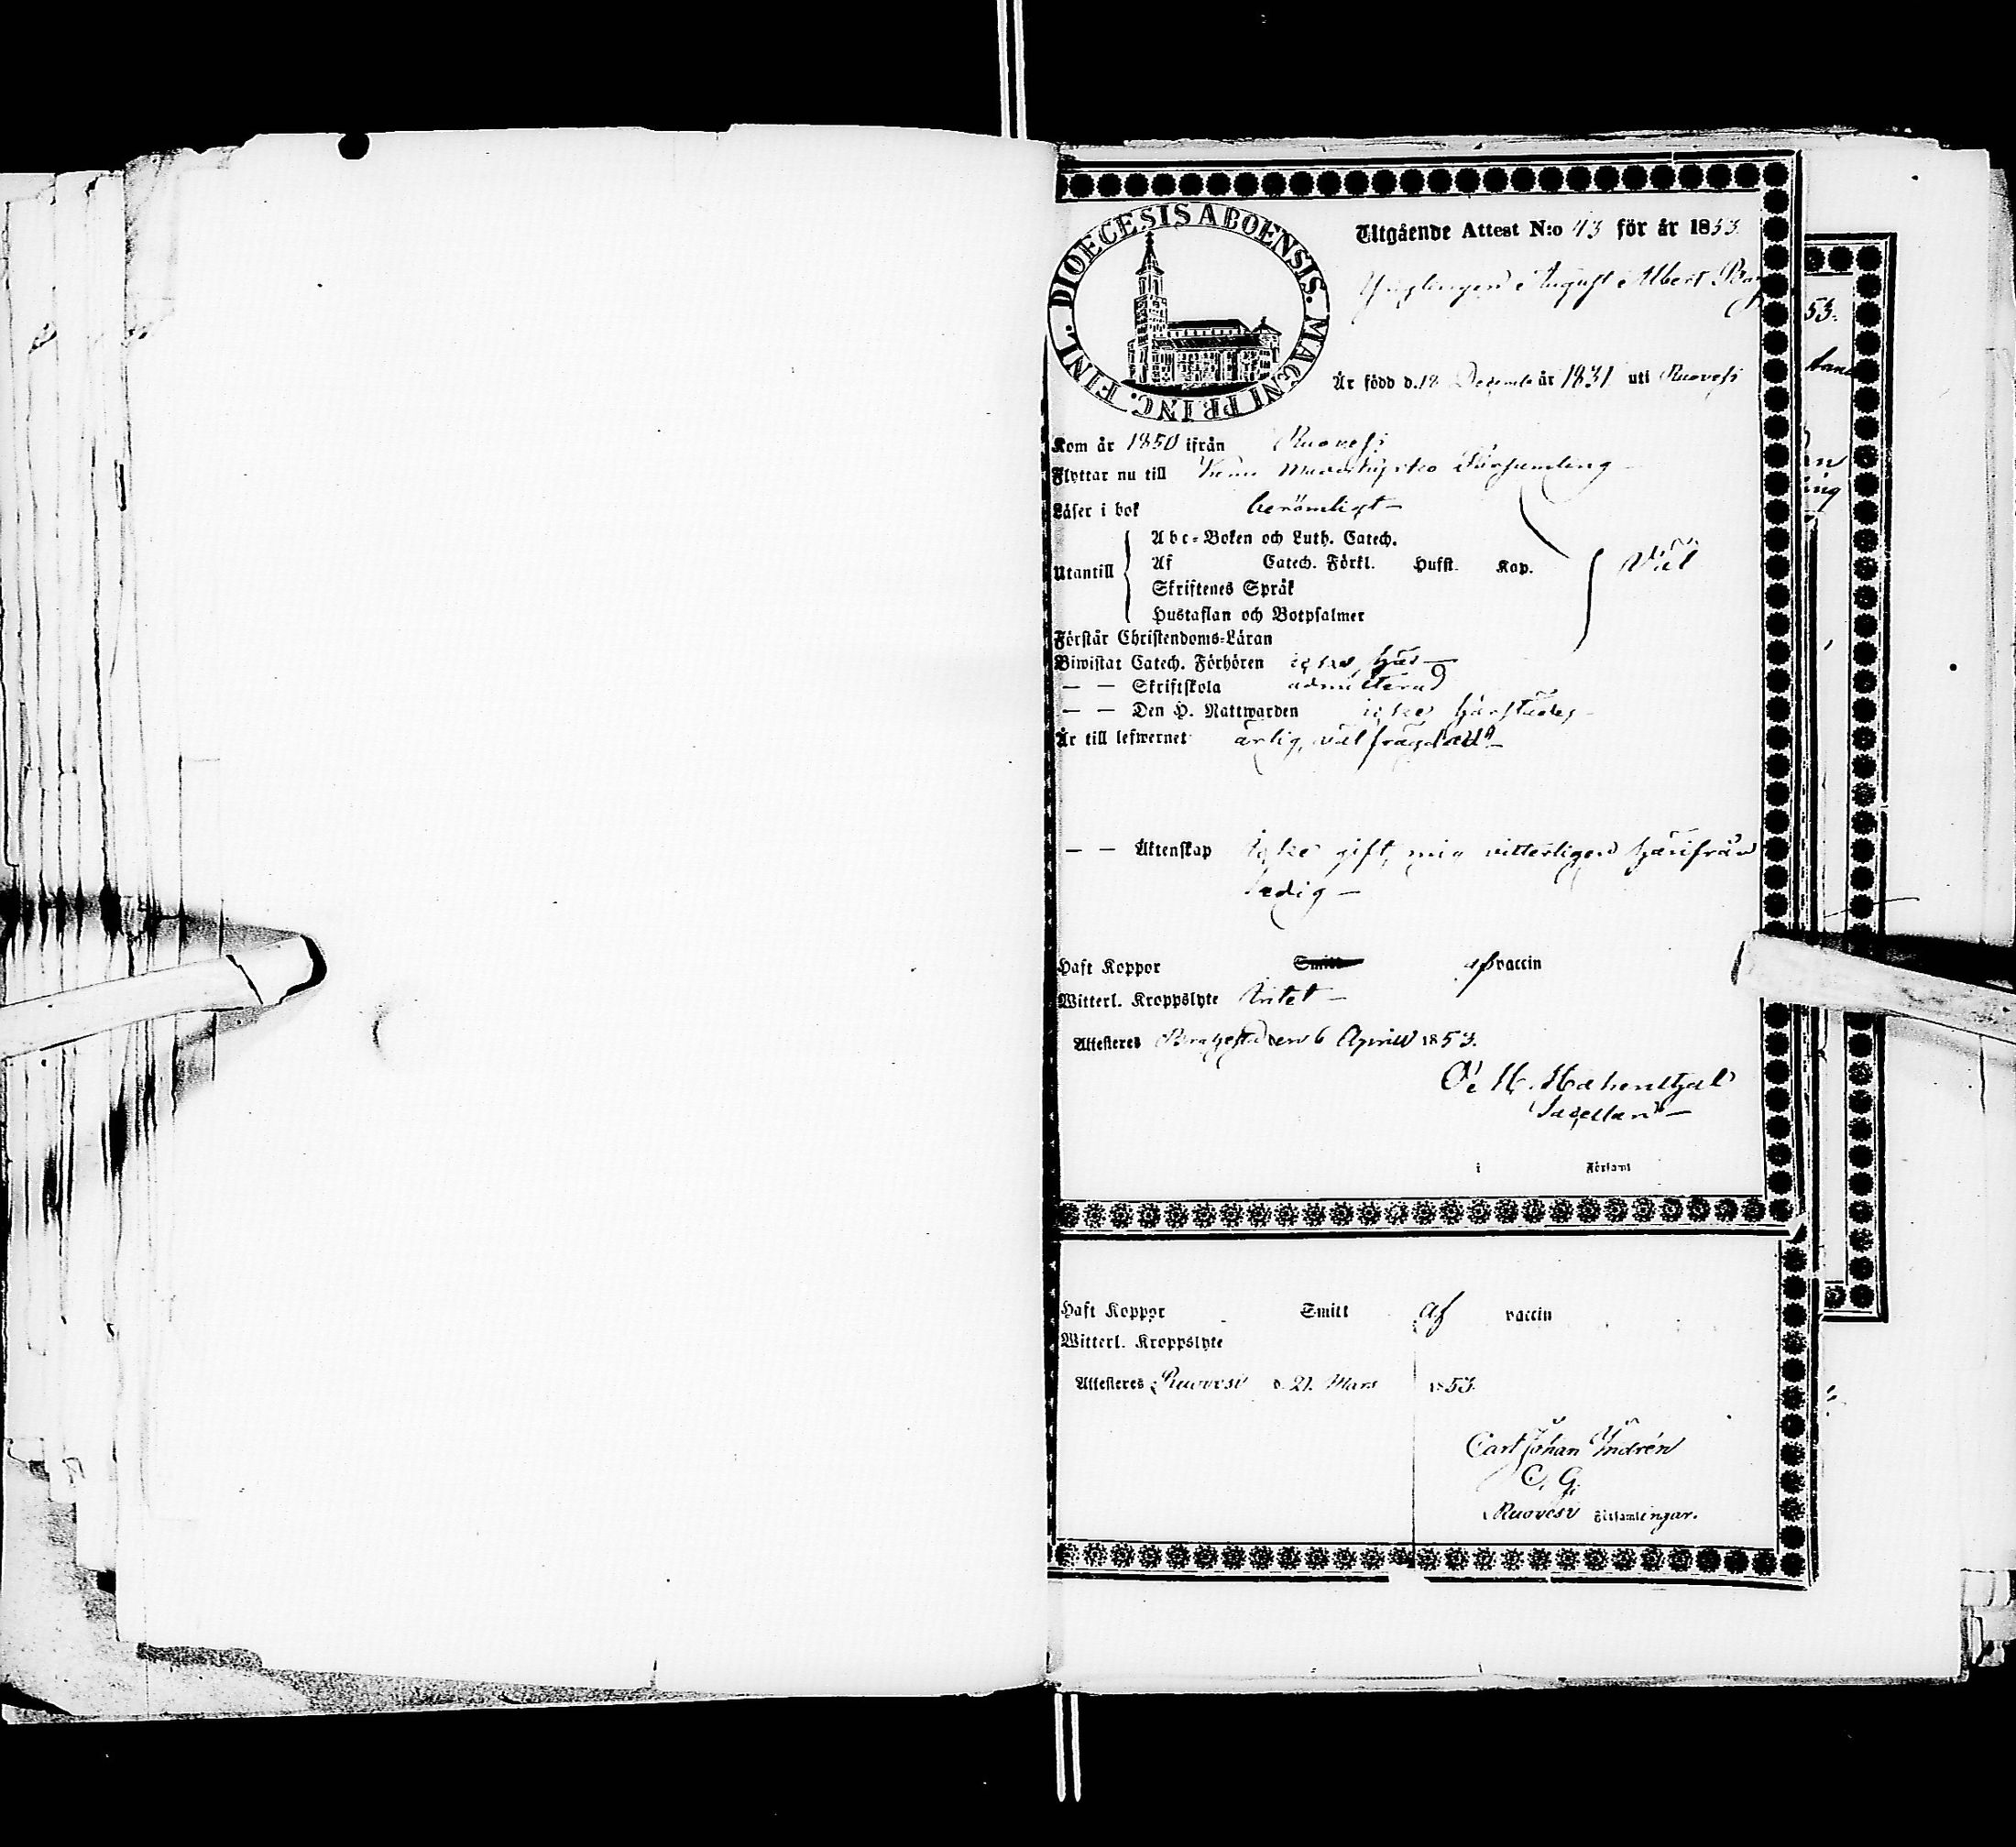 DIOECESIS ABOENSIS. MAGNI PRINC. FINL.
Utgående Attest N:o 43 för år 1853.
Ynglingen August Albert
53.
Är född d. 18 December år 1831 uti Ruovesi
Kom år 1850 ifrån Ruovesi
Flyttar nu till Församling
Läser i bok berömligt —
Utantill
Abc-Boken och Luth. Catech.
Af Catech. Förkl. Husst. Kap.
Skriftenes Språk
Hustaflan och Botpsalmer
Väl
Förstår Christendoms-Läran
Biwistat Catech. Förhören icke här —
— — Skriftskola admitterad
— — Den H. Nattwarden icke härstädes —
Är till lefwernet ärlig, väl frägdad —
— — Äktenskap Icke gift, men vitterligen härifrån
ledig —
Haft Koppor Smitt af vaccin
Witterl. Kroppslyte Intet —
Attesteres Brahestad den 6 Aprill 1853.
Sacellan —
i Församl
Haft Koppor Smitt af vaccin
Witterl. Kroppslyte
Attesteres Ruovesi d. 21. Mars 1853.
Carl Johan Indrén
C. G.
Ruovesi Församlingar.